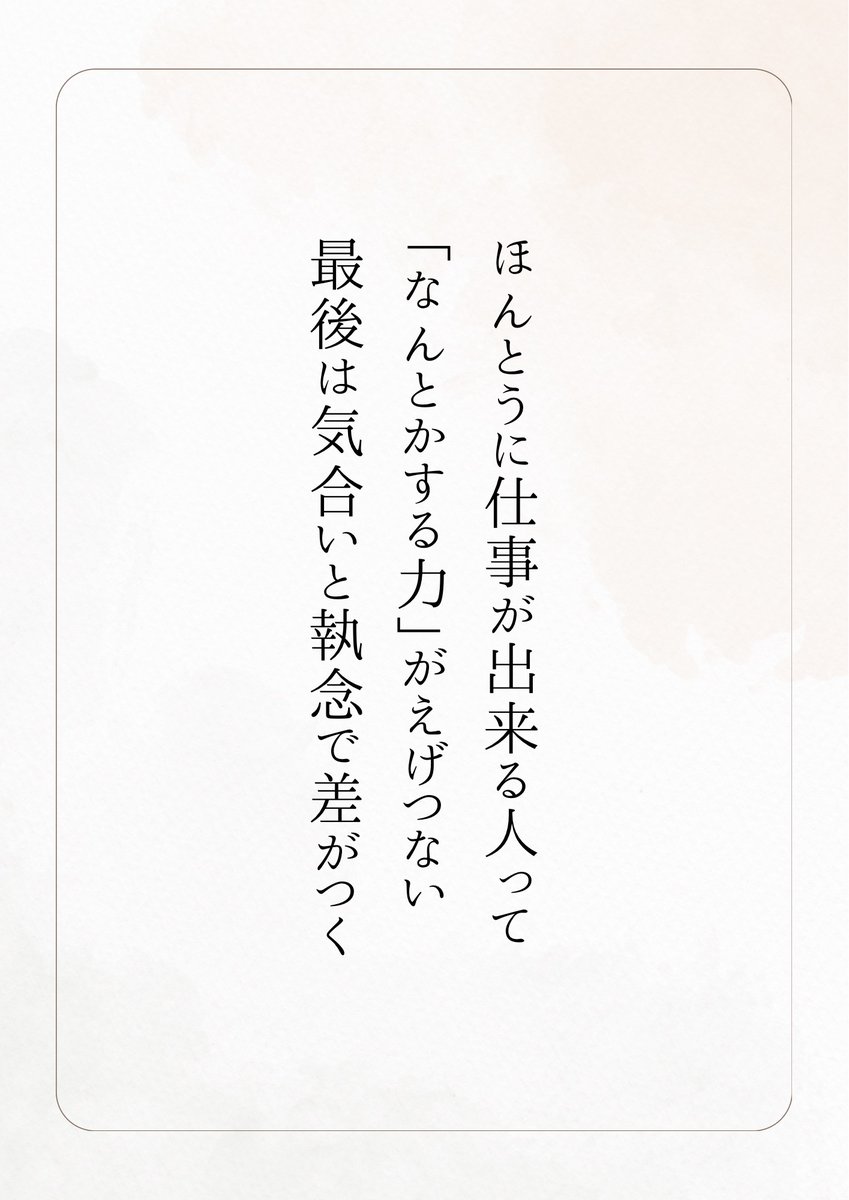 ほんとうに仕事が出来る人って
「なんとかする力」がえげつない
最後は気合いと執念で差がつく